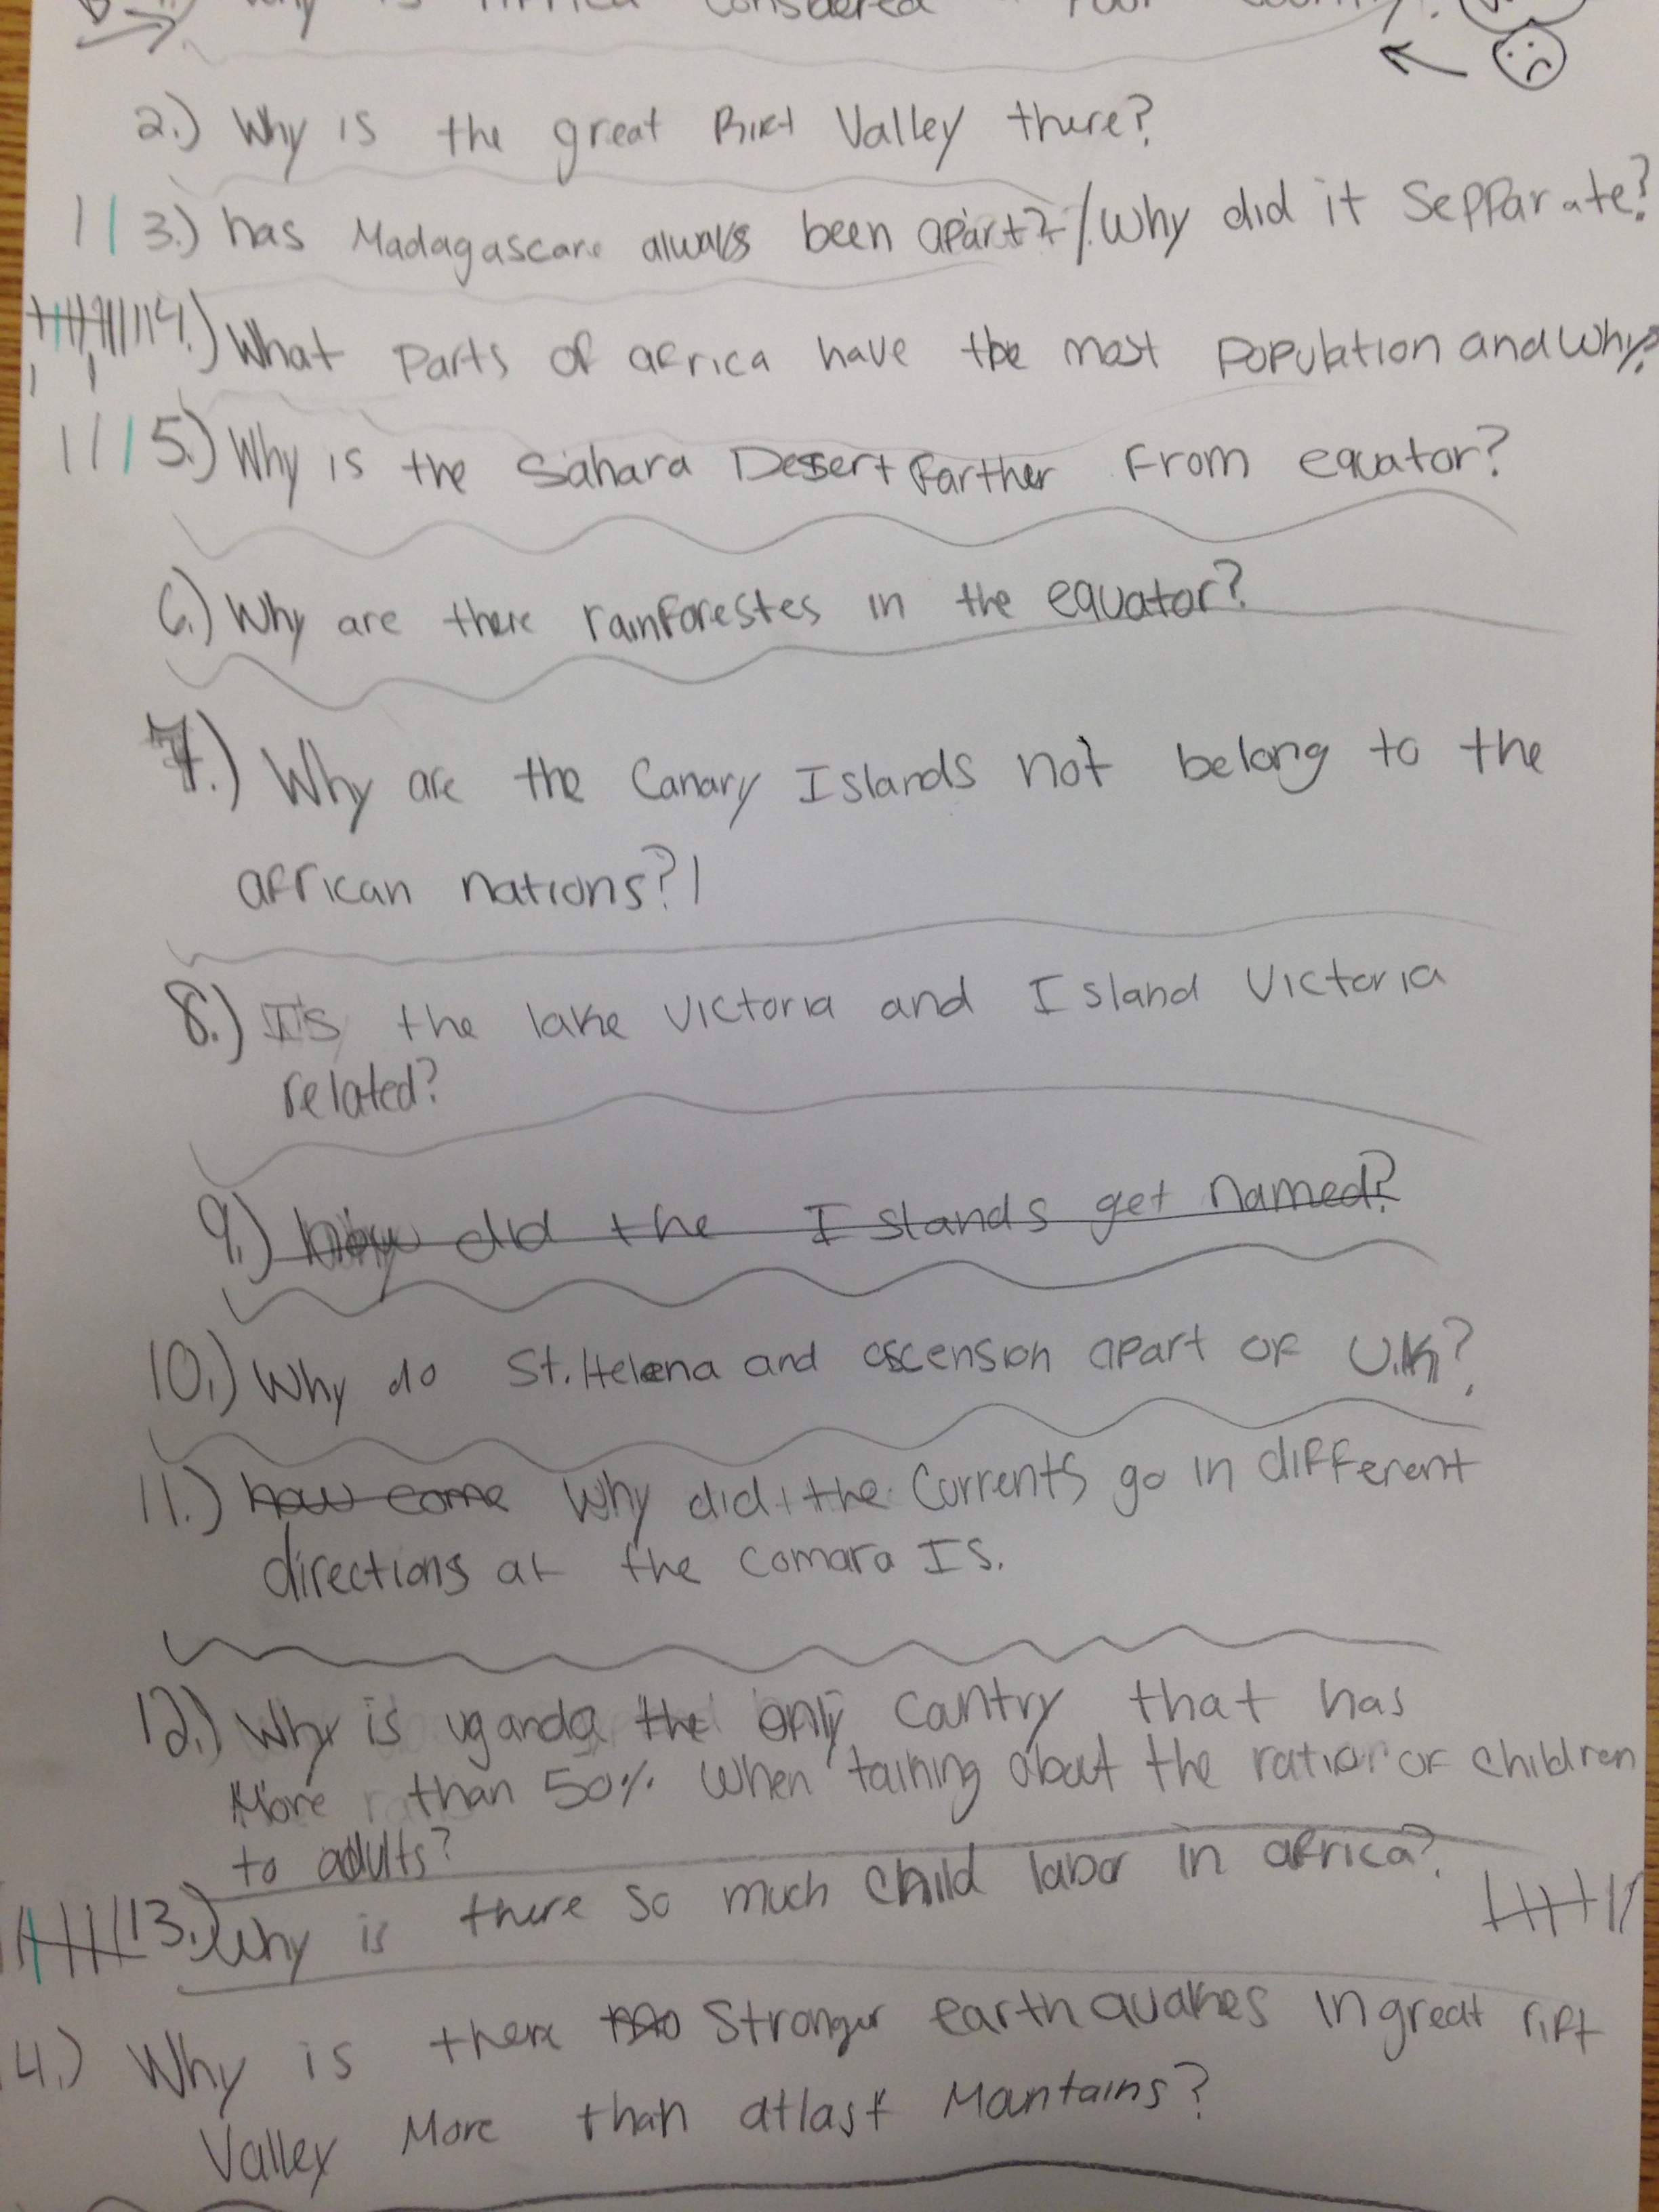 Why is Africa considered a Poor
2.) Why is the great Rift Valley there?
3.) has Madagascare always been apart?/Why did it Sepparate?
4.) What Parts of africa have the most Population and Why?
5.) Why is the Sahara Desert farther From equator?
6.) Why are there rainforestes in the equator?
7.) Why are the Canary Islands not belong to the
african nations?
8.) Is the lake Victoria and Island Victoria
related?
9.) did the Islands get named?
10.) Why do St. Helena and ascension apart of U.K?
11.) how come Why did the Currents go in different
directions at the Comara IS.
12.) Why is uganda the only Cantry that has
More than 50% When talking about the ratio of children
to adults?
13.) Why is there so much Child labor in africa?
4.) Why is there Stronger earthquakes in great rift
Valley More than atlast Mantains?